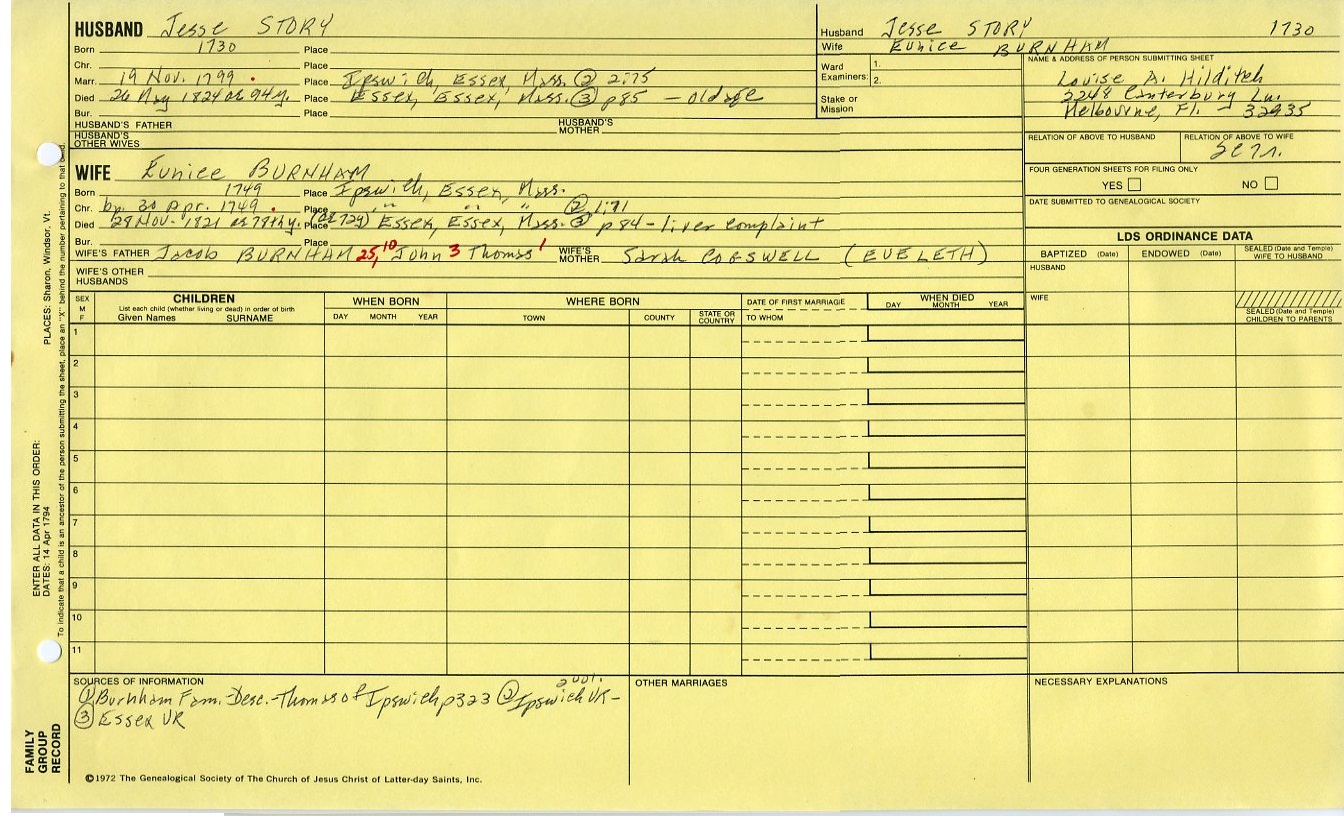 HUSBAND Jesse STORY
Born 1730 Place
Chr. Place
Marr. 19 Nov. 1799. Place Ipswich, Essex, Mass. (2) 2:75
Died 26 May 1824 ae 94y. Place Essex, Essex, Mass. (3) p85 - old age
Bur. Place
HUSBAND'S FATHER HUSBAND'S MOTHER
HUSBAND'S OTHER WIVES
Husband Jesse STORY 1730
Wife Eunice BURNHAM
Ward Examiners: 1. 2.
Stake or Mission
NAME & ADDRESS OF PERSON SUBMITTING SHEET
Louise A. Hilditch
2248 Canterbury Ln.
Melbourne, Fl. - 32935
RELATION OF ABOVE TO HUSBAND RELATION OF ABOVE TO WIFE
FOUR GENERATION SHEETS FOR FILING ONLY
YES NO
DATE SUBMITTED TO GENEALOGICAL SOCIETY
WIFE Eunice BURNHAM
Born 1749 Place Ipswich, Essex, Mass.
Chr. bp. 30 Apr. 1749. Place " " " (2) 1:71
Died 28 Nov. 1821 ae 78thy. Place (ae 72y) Essex, Essex, Mass. (3) p84 - liver complaint
Bur. Place
WIFE'S FATHER Jacob BURNHAM 25,10 John 3 Thomas 1 WIFE'S MOTHER Sarah COGSWELL (EVELETH)
WIFE'S OTHER HUSBANDS
LDS ORDINANCE DATA
BAPTIZED (Date) ENDOWED (Date) SEALED (Date and Temple) WIFE TO HUSBAND
HUSBAND
WIFE
SEALED (Date and Temple) CHILDREN TO PARENTS
SEX M F
CHILDREN
List each child (whether living or dead) in order of birth
Given Names SURNAME
WHEN BORN
DAY MONTH YEAR
WHERE BORN
TOWN COUNTY STATE OR COUNTRY
DATE OF FIRST MARRIAGE
TO WHOM
WHEN DIED
DAY MONTH YEAR
1
2
3
4
5
6
7
8
9
10
11
SOURCES OF INFORMATION
(1) Burnham Fam. Desc.-Thomas of Ipswich p323 (2) Ipswich VR - 2 vol.
(3) Essex VR
OTHER MARRIAGES
NECESSARY EXPLANATIONS
©1972 The Genealogical Society of The Church of Jesus Christ of Latter-day Saints, Inc.
FAMILY GROUP RECORD
ENTER ALL DATA IN THIS ORDER:
DATES: 14 Apr 1794
PLACES: Sharon, Windsor, Vt.
To indicate that a child is an ancestor of the person submitting the sheet, place an "X" behind the number pertaining to that child.